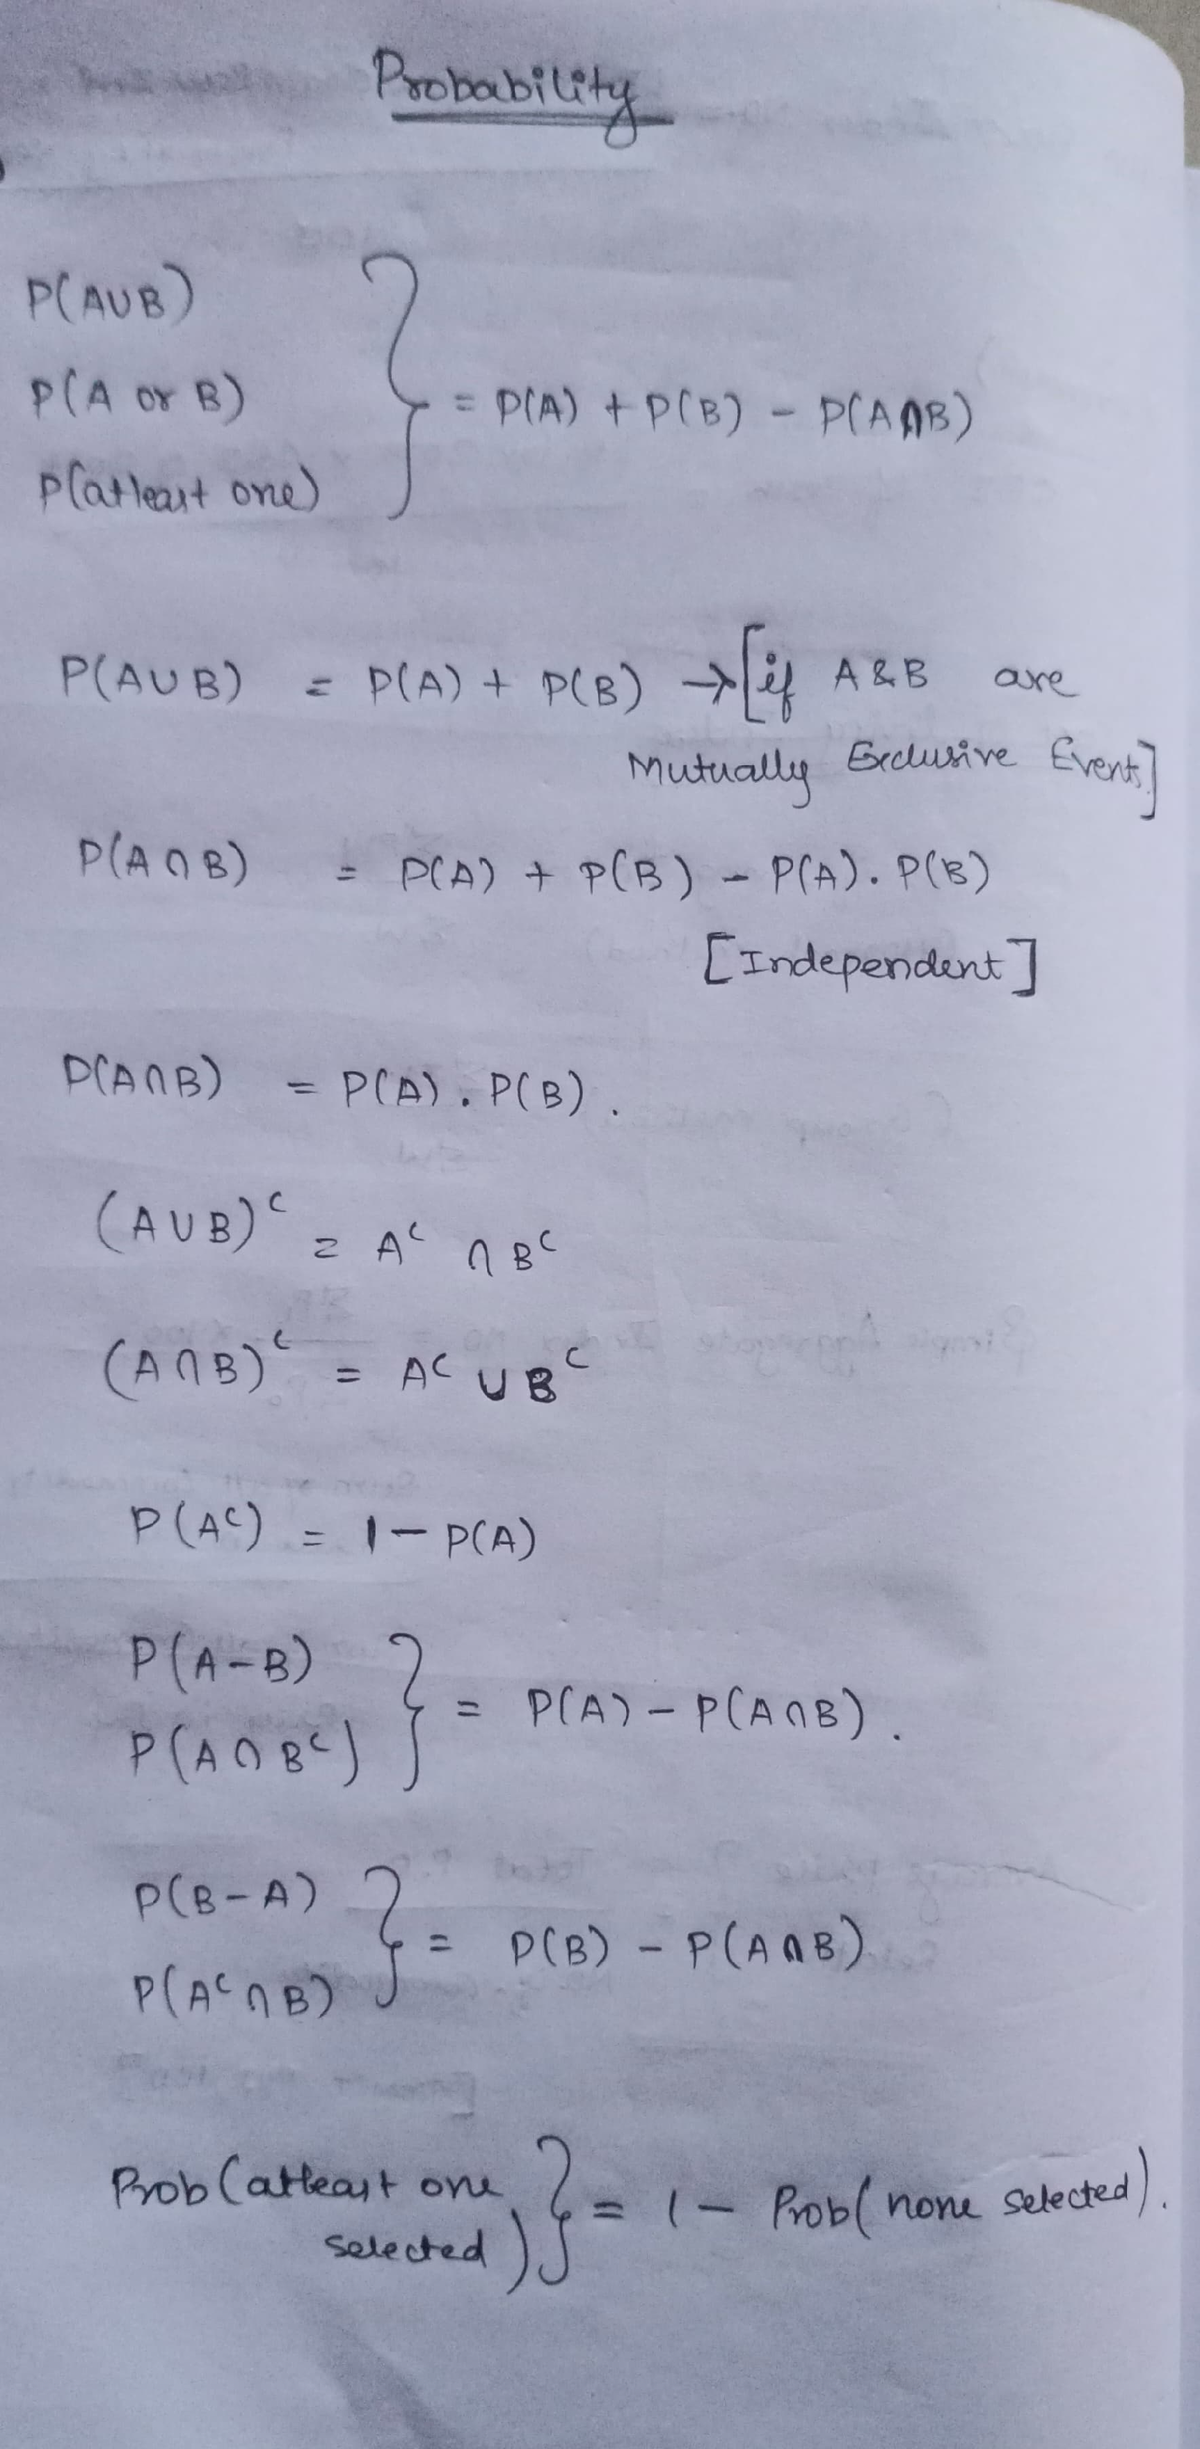 Probability
P(A∪B)
P(A or B)
P(atleast one)
} = P(A) + P(B) - P(A∩B)
P(A∪B) = P(A) + P(B) → [if A & B are
Mutually Exclusive Event]
P(A∩B) = P(A) + P(B) - P(A). P(B)
[Independent]
P(A∩B) = P(A). P(B).
(A∪B)ᶜ = Aᶜ ∩ Bᶜ
(A∩B)ᶜ = Aᶜ ∪ Bᶜ
P(Aᶜ) = 1 - P(A)
P(A-B)
P(A∩Bᶜ)
} = P(A) - P(A∩B).
P(B-A)
P(Aᶜ∩B)
} = P(B) - P(A∩B)
Prob (atleast one
selected) } = 1 - Prob( none selected).